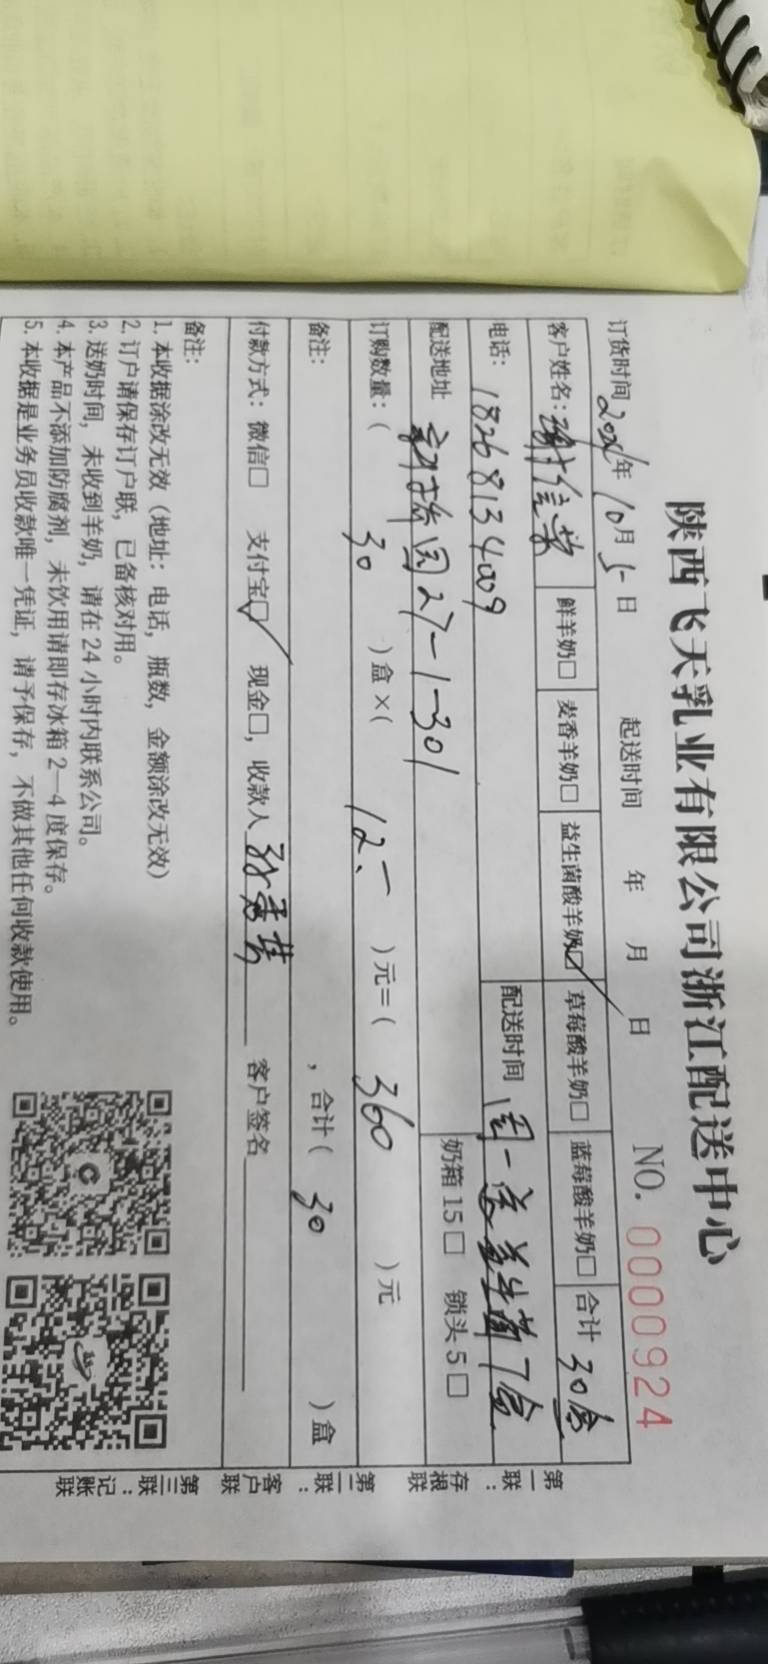 陕西飞天乳业有限公司浙江配送中心
订货时间 年10月5日 起送时间 年 月 日 NO. 0000924
客户姓名: 鲜羊奶□ 麦香羊奶□ 益生菌酸羊奶☑ 草莓酸羊奶□ 蓝莓酸羊奶□ 合计 30盒
电话: 18268134009 配送时间 周一送益生菌7盒
配送地址 园27-1-301 奶箱15□ 锁头5□
订购数量:( 30 )盒×( 12 )元=( 360 )元
备注: ,合计( 30 )盒
付款方式: 微信□ 支付宝☑ 现金□, 收款人 客户签名
备注:
1. 本收据涂改无效(地址: 电话, 瓶数, 金额涂改无效)
2. 订户请保存订户联, 已备核对用。
3. 送奶时间, 未收到羊奶, 请在24小时内联系公司。
4. 本产品不添加防腐剂, 未饮用请即存冰箱2—4度保存。
5. 本收据是业务员收款唯一凭证, 请予保存, 不做其他任何收款使用。
第一联:存根联
第二联:客户联
第三联:记账联